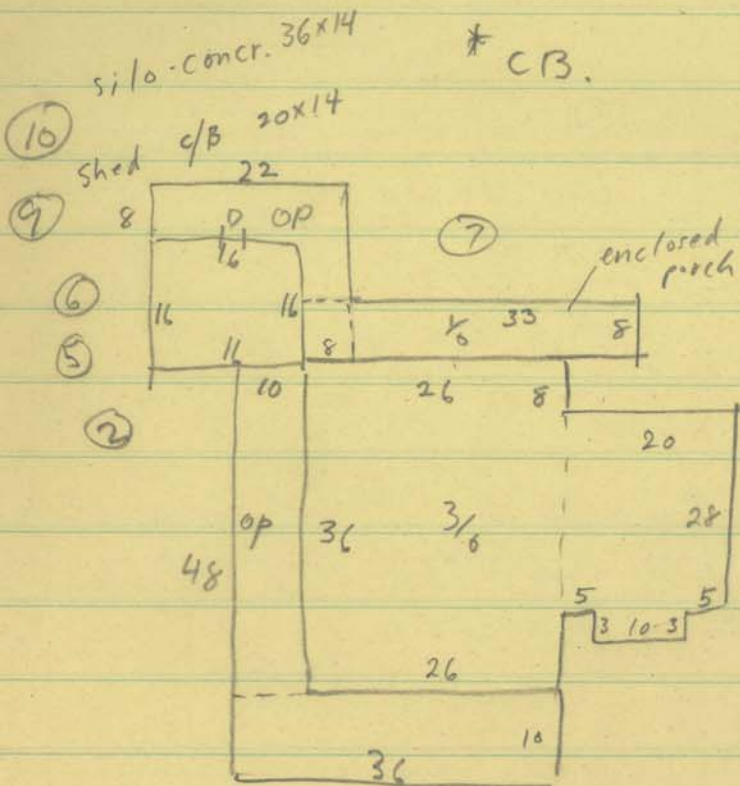 silo-concr. 36x14
* CB.
10
shed c/B 20x14
22
9 8 D OP 7
16
enclosed
porch
6 16 16 33 8
5 16 8
10 26 8
2 20
OP 36 3/6 28
48
5 5
3 10-3
26
10
36